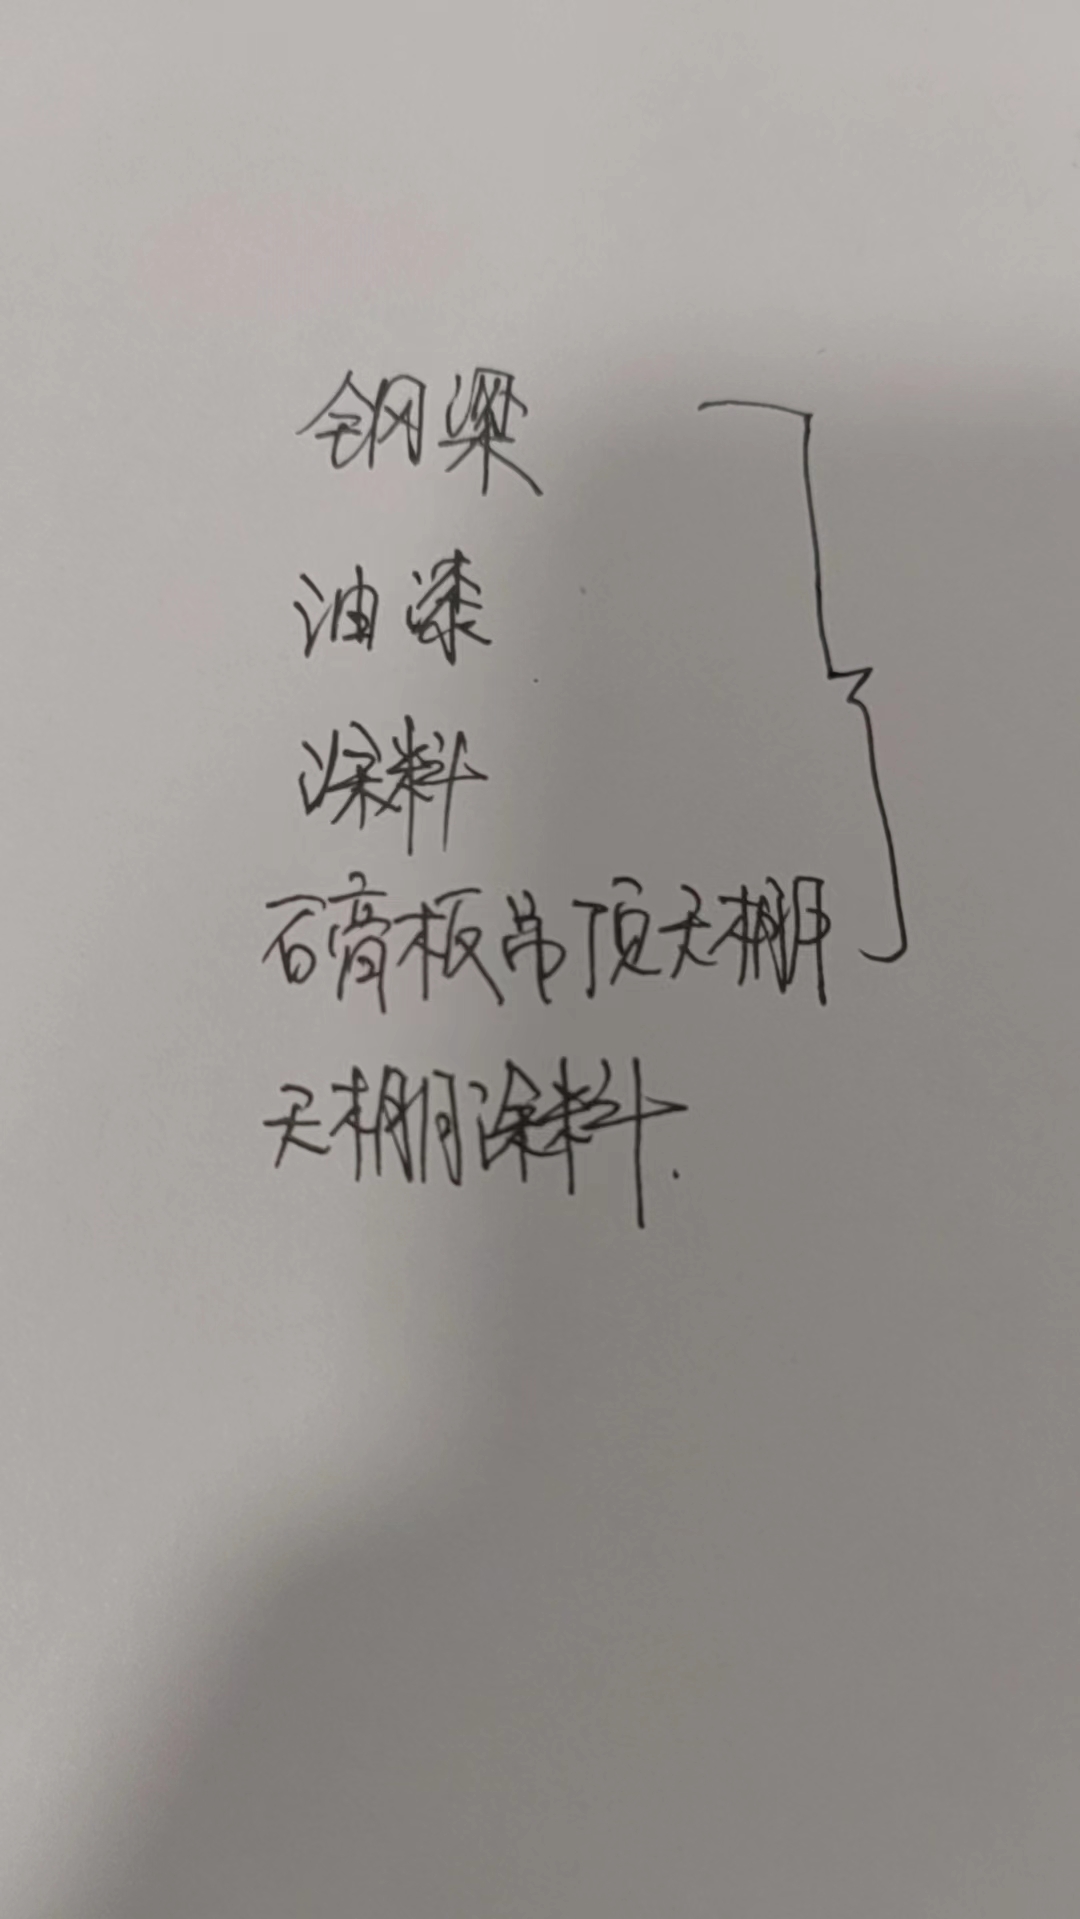 钢梁
油漆
涂料
石膏板吊顶天棚
天棚涂料.